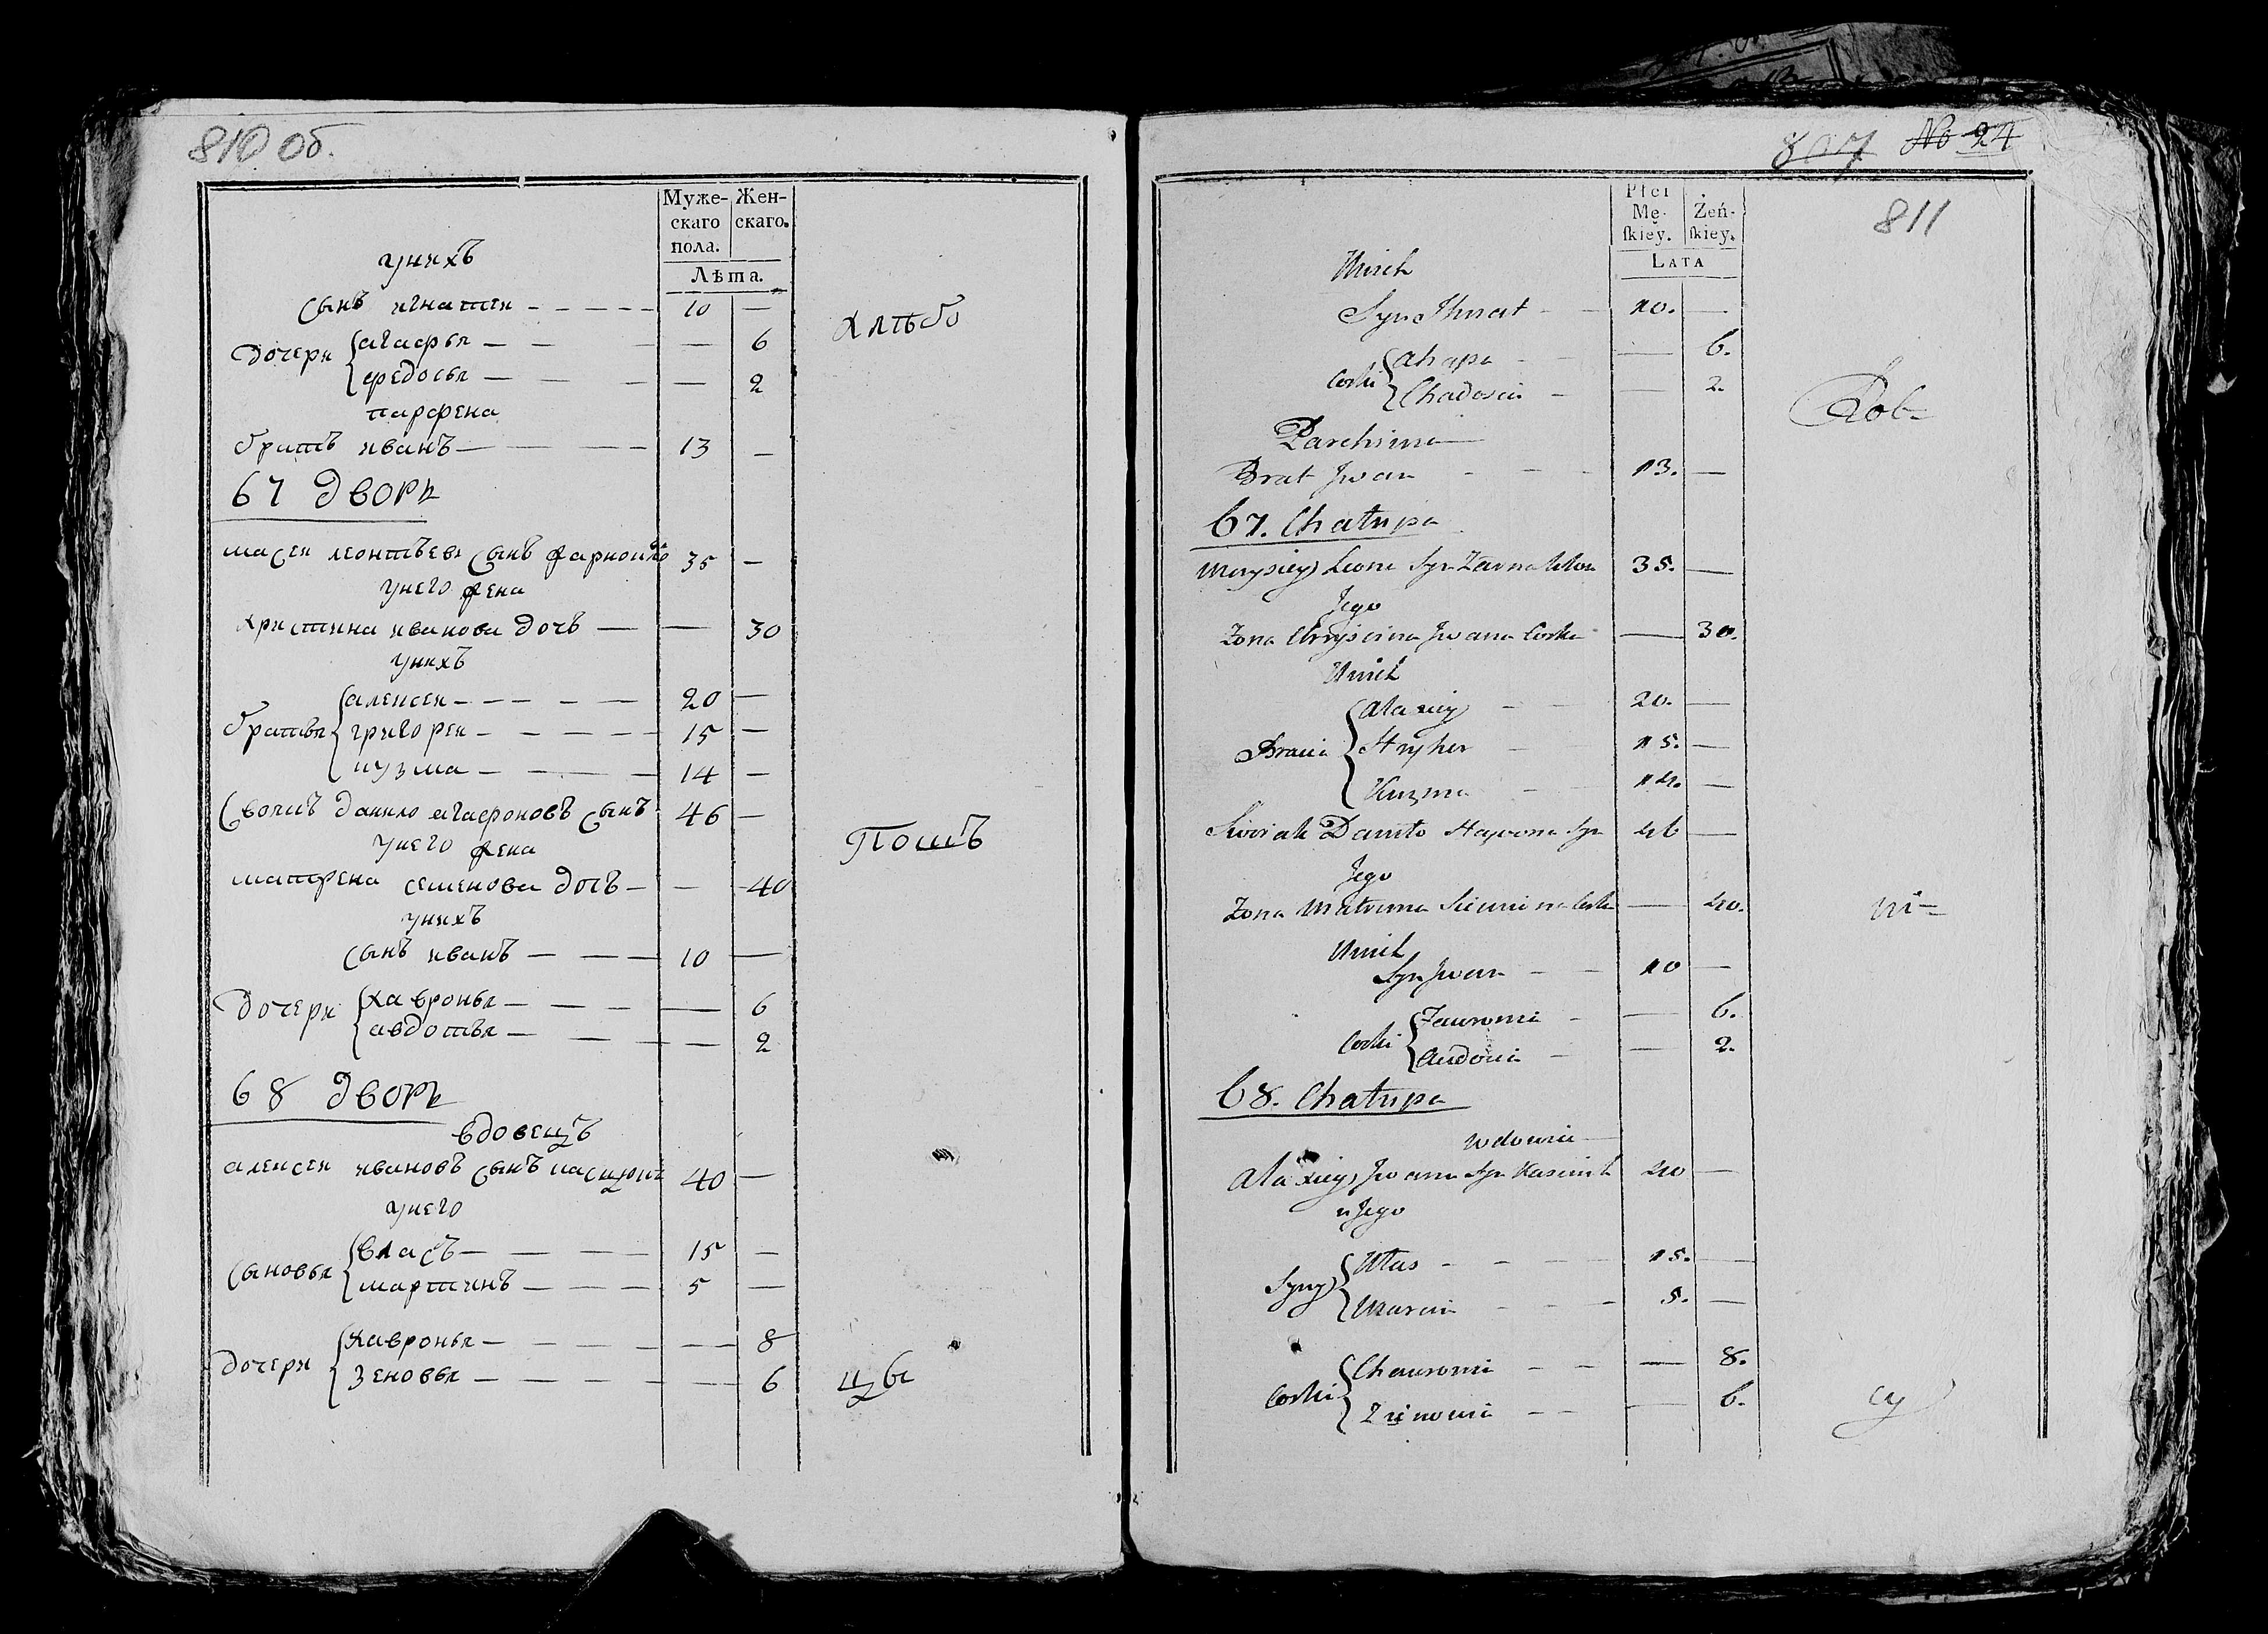 810 об.
Муже-
скаго
пола.
Жен-
скаго.
Лѣта.
унихъ
сынъ игнатеи — 10 —
дочери
агафья — — 6
федосья — — 2
парфена
братъ иванъ — 13 —
67 дворъ
масеи леонтьевъ сынъ 35 —
унего жена
христина иванова дочь — — 30
унихъ
братья
алексеи — 20 —
григореи — 15 —
кузма — 14 —
своякъ данило агафоновъ сынъ 46 —
унего жена
матрена семенова дочь — — 40
унихъ
сынъ иванъ — 10 —
дочери
хавронья — — 6
авдотья — — 2
68 дворъ
вдовецъ
алексеи ивановъ сынъ 40 —
унего
сыновья
власъ — 15 —
мартинъ — 5 —
дочери
хавронья — — 8
зеновья — — 6
хлѣбо
Пошъ
цы
807 No 24
811
Płci
Mę-
ſkiey.
Żeń-
ſkiey.
LATA
Unich
Syn Ihnat — 10. —
Corki
Ahapa — — 6.
Chadosia — — 2.
Parchima
Brat Jwan — 13. —
67. Chałupa
Mojsiey Leona Syn 35. —
Jego
Zona Chryścina Jwana Corka — 30.
Unich
Bracia
Alaxiey — 20. —
Hryhor — 15. —
Kuzma — 14. —
Swiak Daniło Hapona Syn 46 —
Jego
Zona Matruna Siemiona Corka — 40.
Unich
Syn Jwan — 10 —
Corki
Audocia — — 2.
68. Chałupa
Wdowiec
Alaxiey Jwana Syn 40 —
u Jego
Syny
Ułas — 15. —
Marcin — 5. —
Corki
Chauronia — — 8.
Zinowia — — 6.
Rob-
ni-
cy